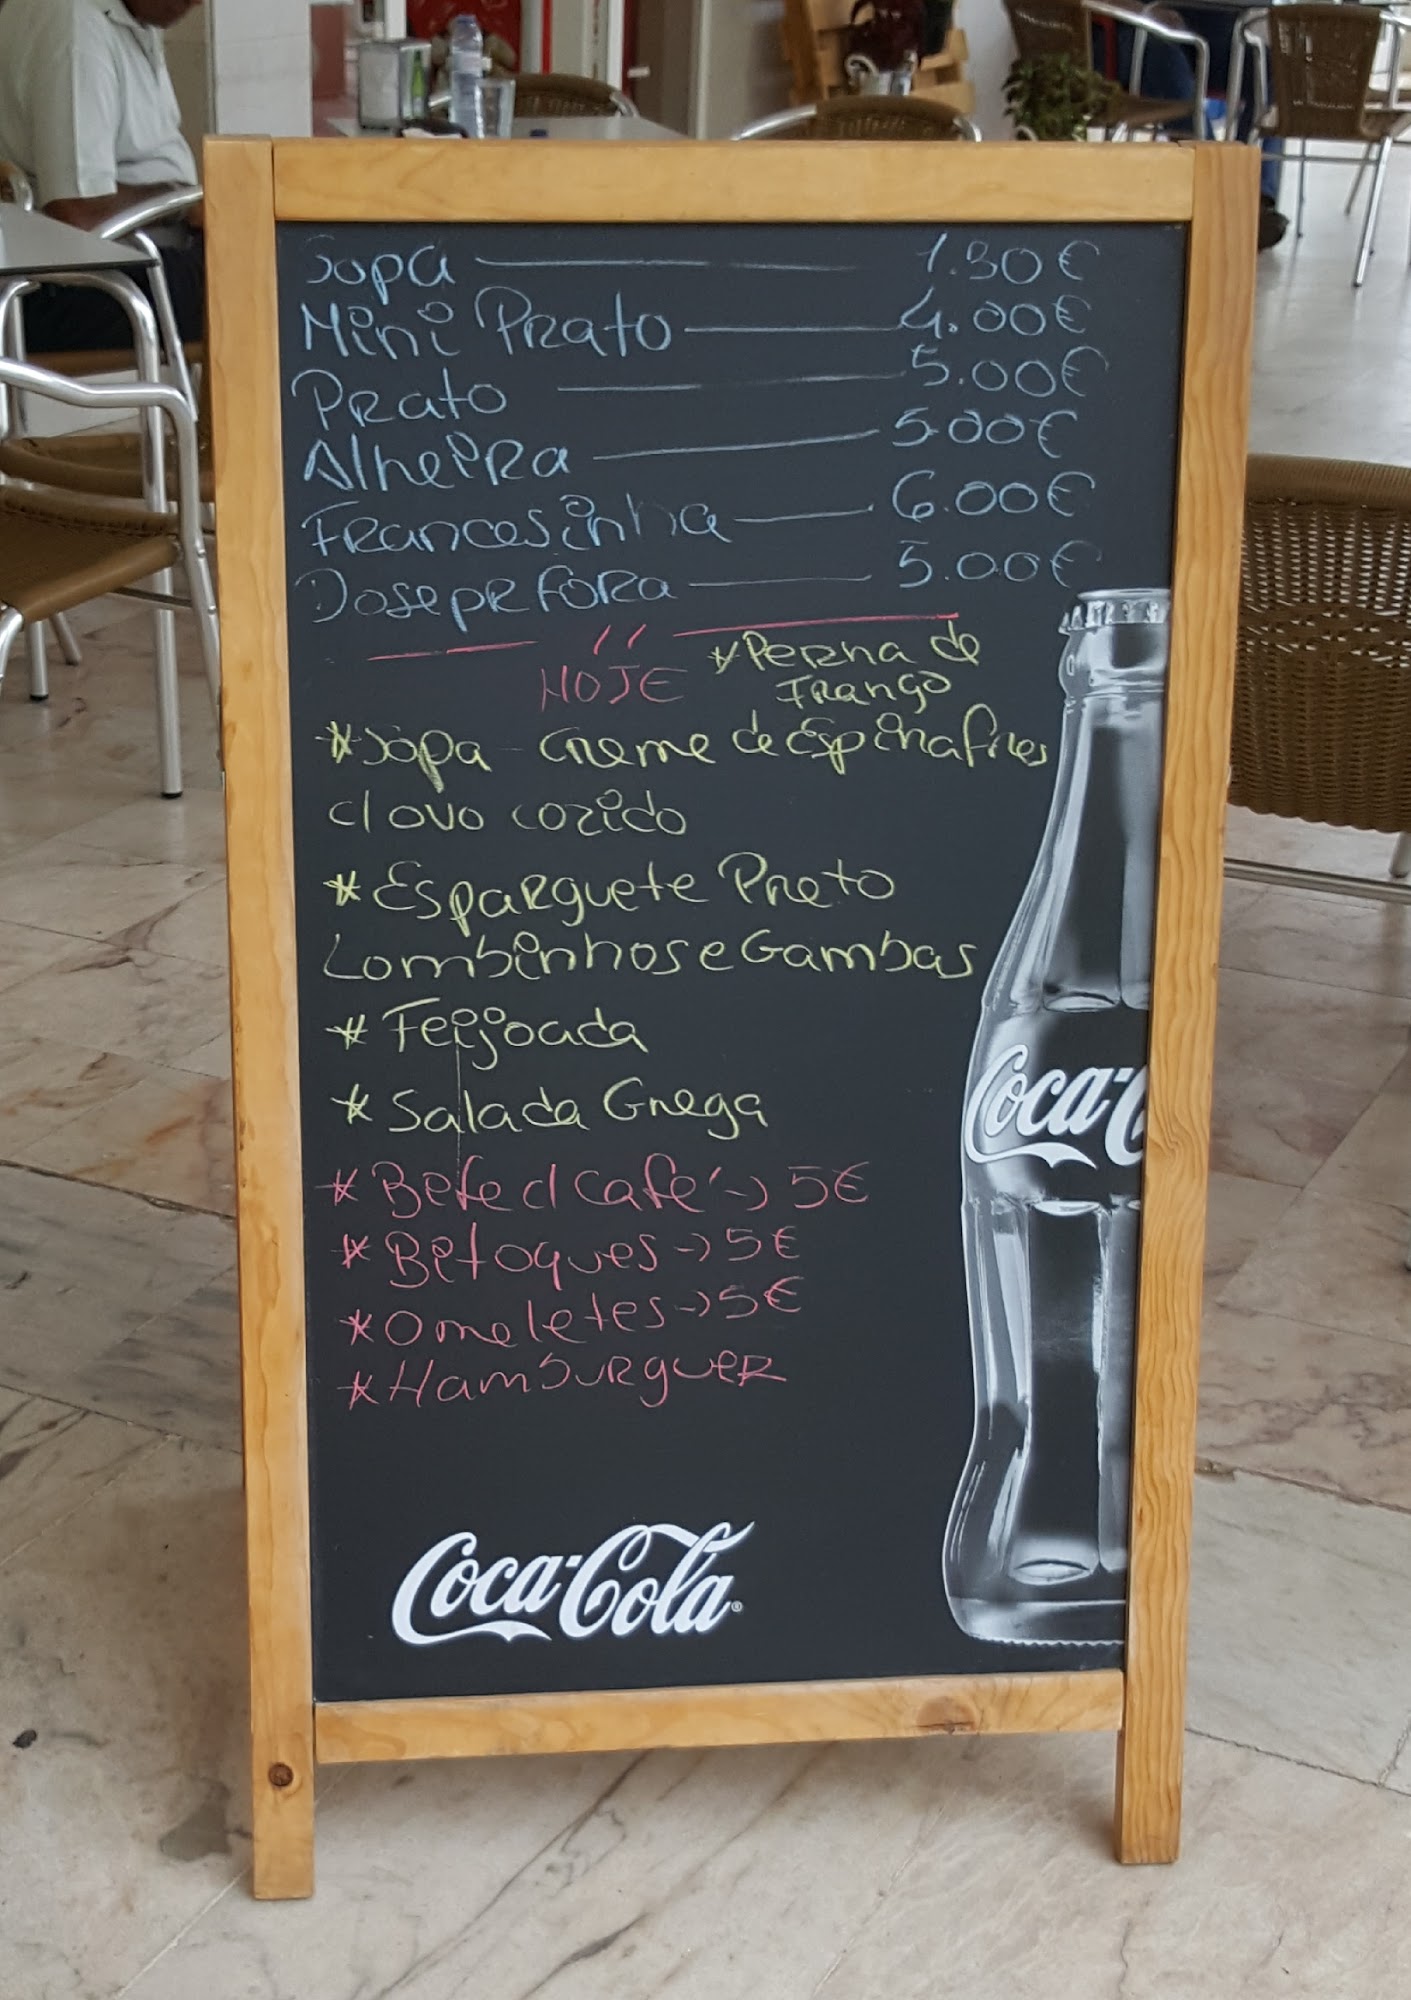 Sopa 1.30€
Mini Prato 4.00€
Prato 5.00€
Alheira 5.00€
Francesinha 6.00€
Dose pr fora 5.00€
" HOJE
*Perna de
Frango
*Sopa - Creme de Espinafres
c/ ovo cozido
*Esparguete Preto
Lombinhos e Gambas
*Feijoada
*Salada Grega
*Befe d café -> 5€
*Bitoques -> 5€
*Omeletes -> 5€
*Hamburguer
Coca-C
Coca-Cola®